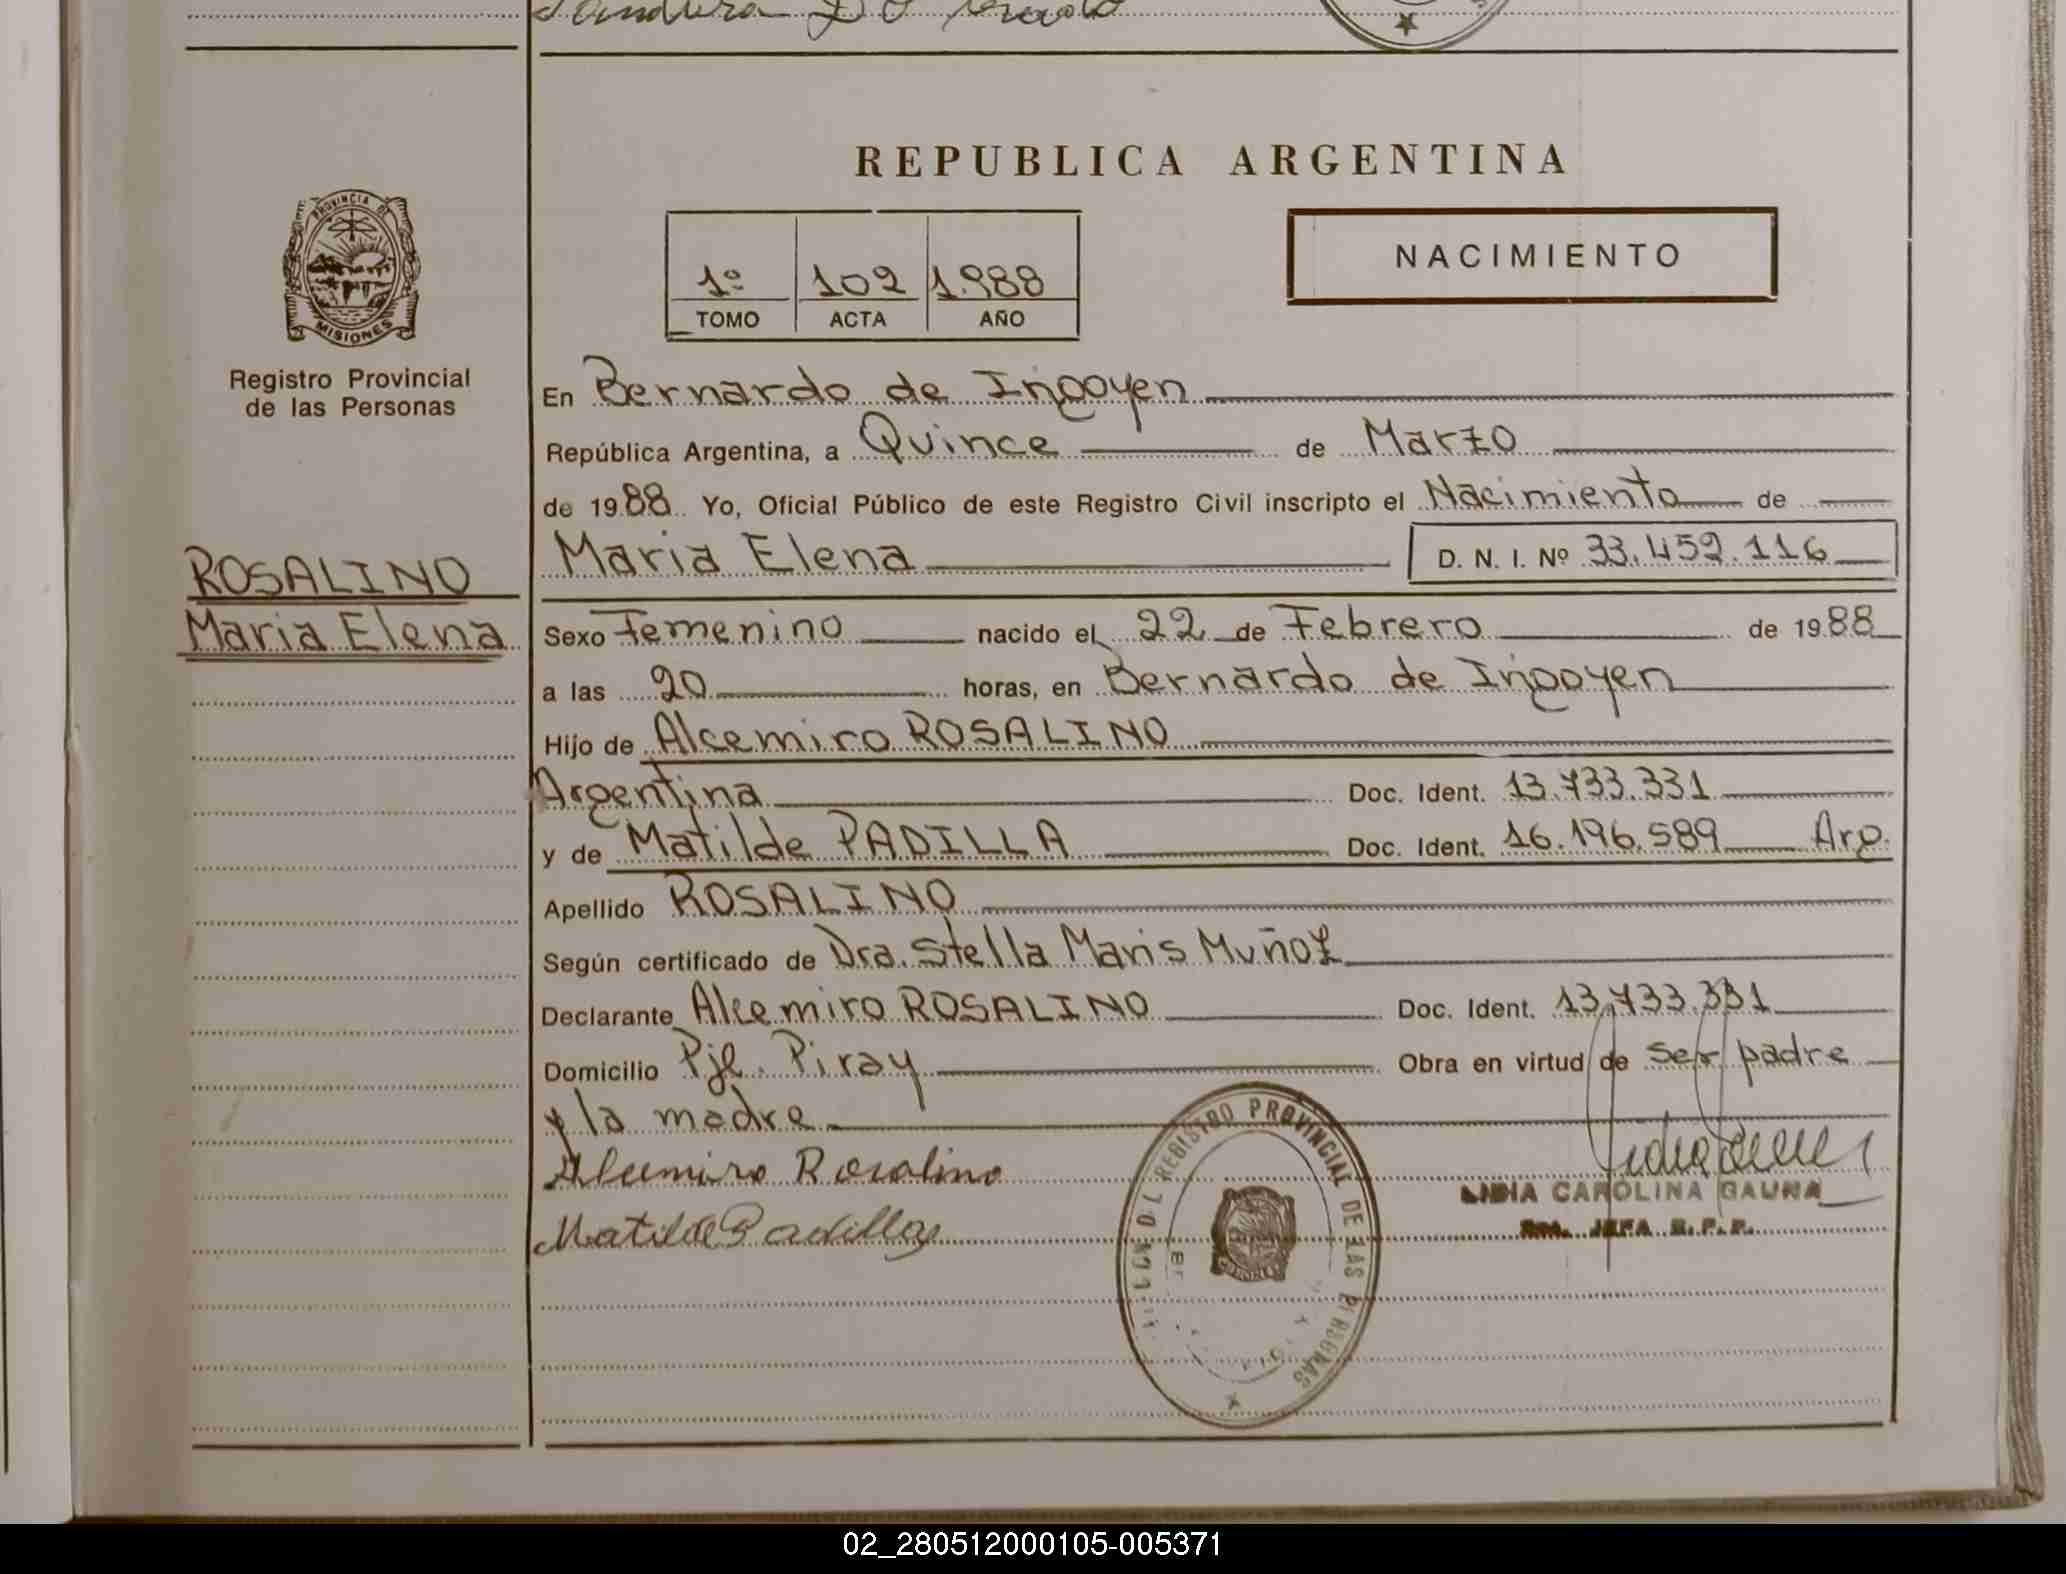 REPUBLICA ARGENTINA
PROVINCIA DE
MISIONES
Registro Provincial
de las Personas
1º 102 1.988
TOMO ACTA AÑO
NACIMIENTO
En Bernardo de Irigoyen
República Argentina, a Quince de Marzo
de 1988 Yo, Oficial Público de este Registro Civil inscripto el Nacimiento de
Maria Elena D. N. I. Nº 33.452.116
ROSALINO
Maria Elena
Sexo Femenino nacido el 22 de Febrero de 1988
a las 20 horas, en Bernardo de Irigoyen
Hijo de Alcemiro ROSALINO
Argentina Doc. Ident. 13.733.331
y de Matilde PADILLA Doc. Ident. 16.196.589 Arg.
Apellido ROSALINO
Según certificado de Dra. Stella Maris Muñoz
Declarante Alcemiro ROSALINO Doc. Ident. 13.733.331
Domicilio Pje. Piray Obra en virtud de ser padre
y la madre
Alcemiro Rosalino
Matilde Padilla
REGISTRO PROVINCIAL DE LAS PERSONAS
LIDIA CAROLINA GAUNA
JEFA R.P.P.
02_280512000105-005371